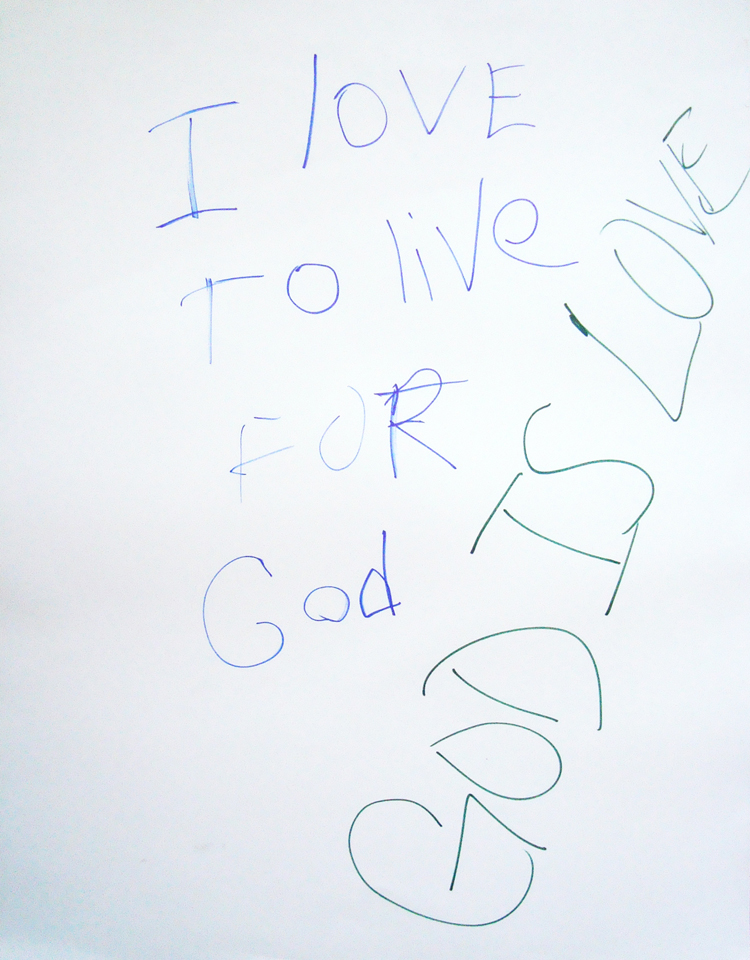 I lOVE
TO liVe
FOR
God
GOD IS LOVE